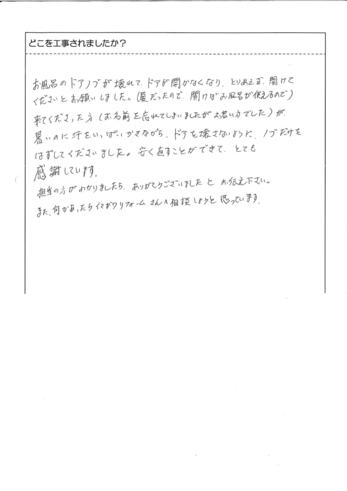 どこを工事されましたか?
お風呂のドアノブが壊れて、ドアが開かなくなり、とりあえず、開けて
くださいとお願いしました。(夏だったので 開けばお風呂が使えるので)
来てくださった方(お名前を忘れてしまいましたがお若い方でした)が
暑いのに汗をいっぱいかきながら、ドアを壊さないように、ノブだけを
はずしてくださいました。安く直すことができて、とても
感謝しています。
担当の方がわかりましたら、ありがとうございました とお伝え下さい。
また、何かあったらイマガワリフォームさんへ相談しようと思っています。